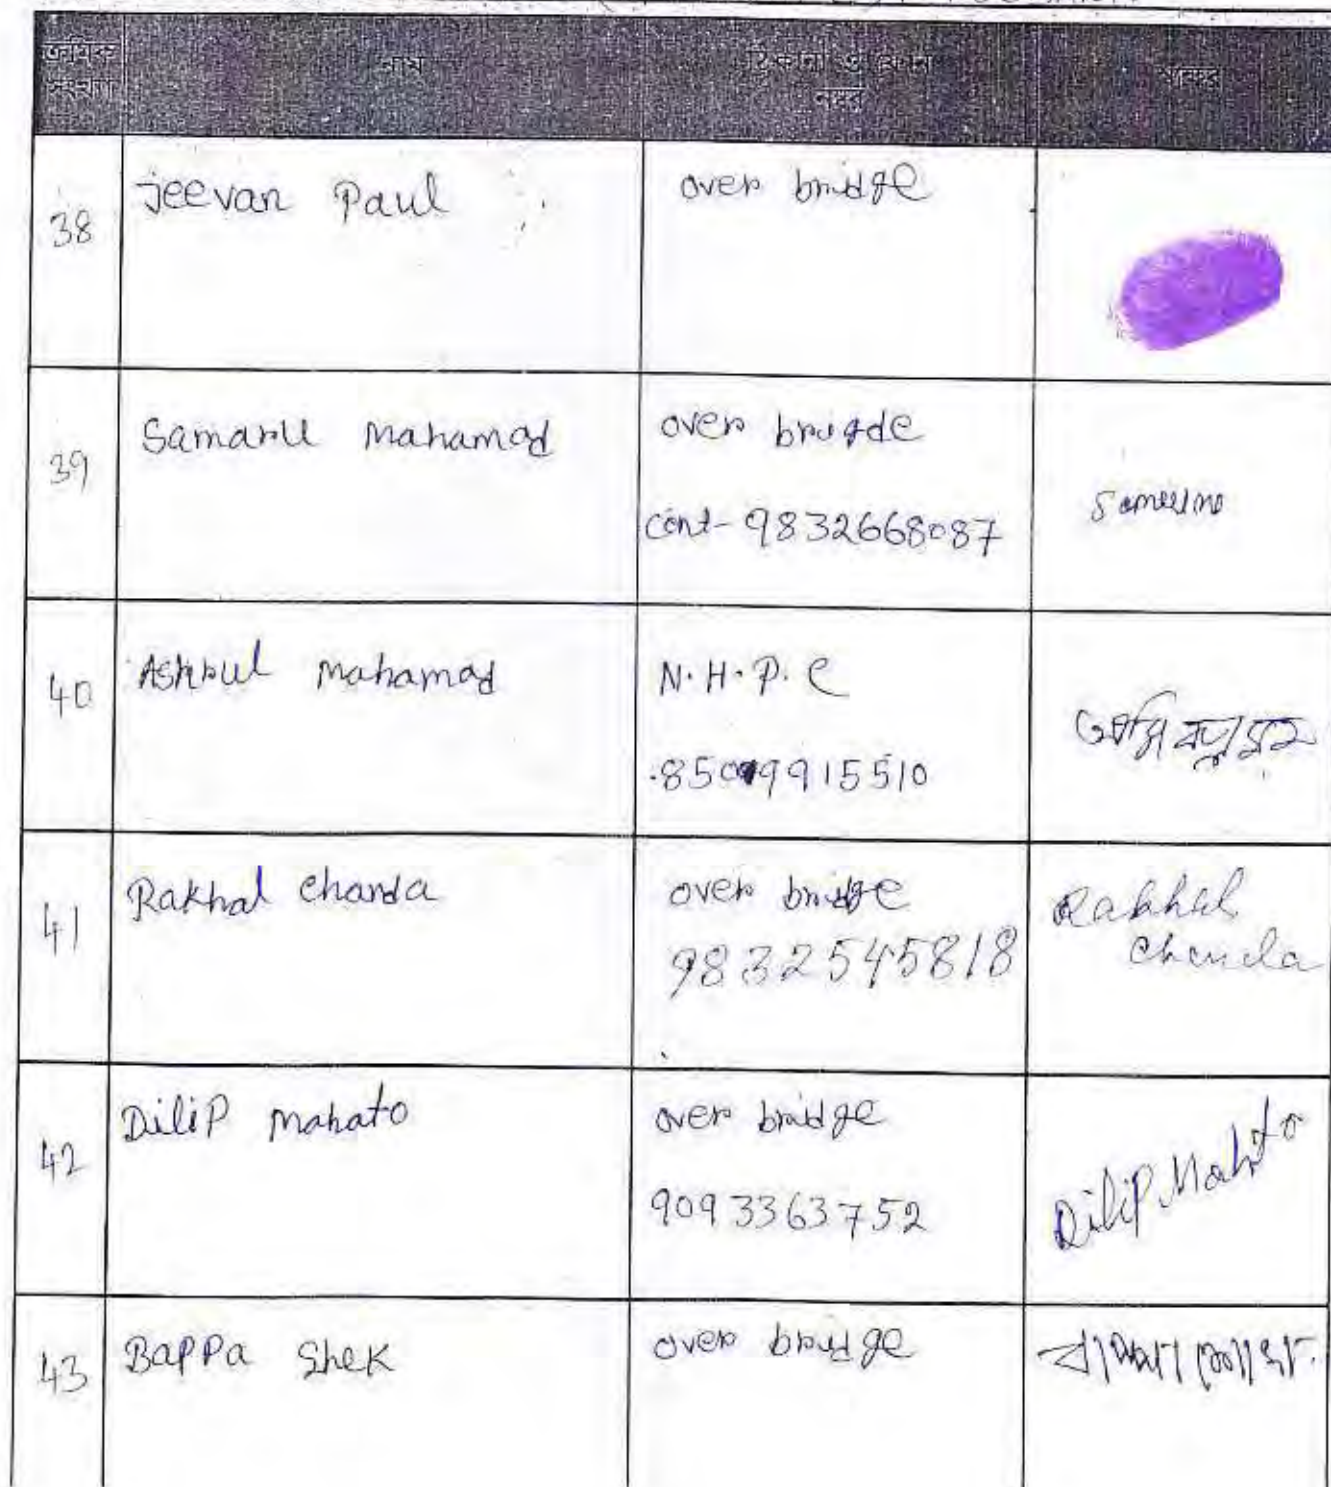 ক্রমিক সংখ্যা নাম ঠিকানা ও ফোন নম্বর স্বাক্ষর
38 Jeevan Paul over bridge
39 Samarul Mahamad over brigde
cont- 9832668087
40 Ashrul Mahamad N.H.P.C
8509915510
41 Rakhal Chanda over bridge Rakhal
9832545818 Chanda
42 Dilip Mahato over bridge Dilip Mahato
9093363752
43 Bappa Shek over bridge